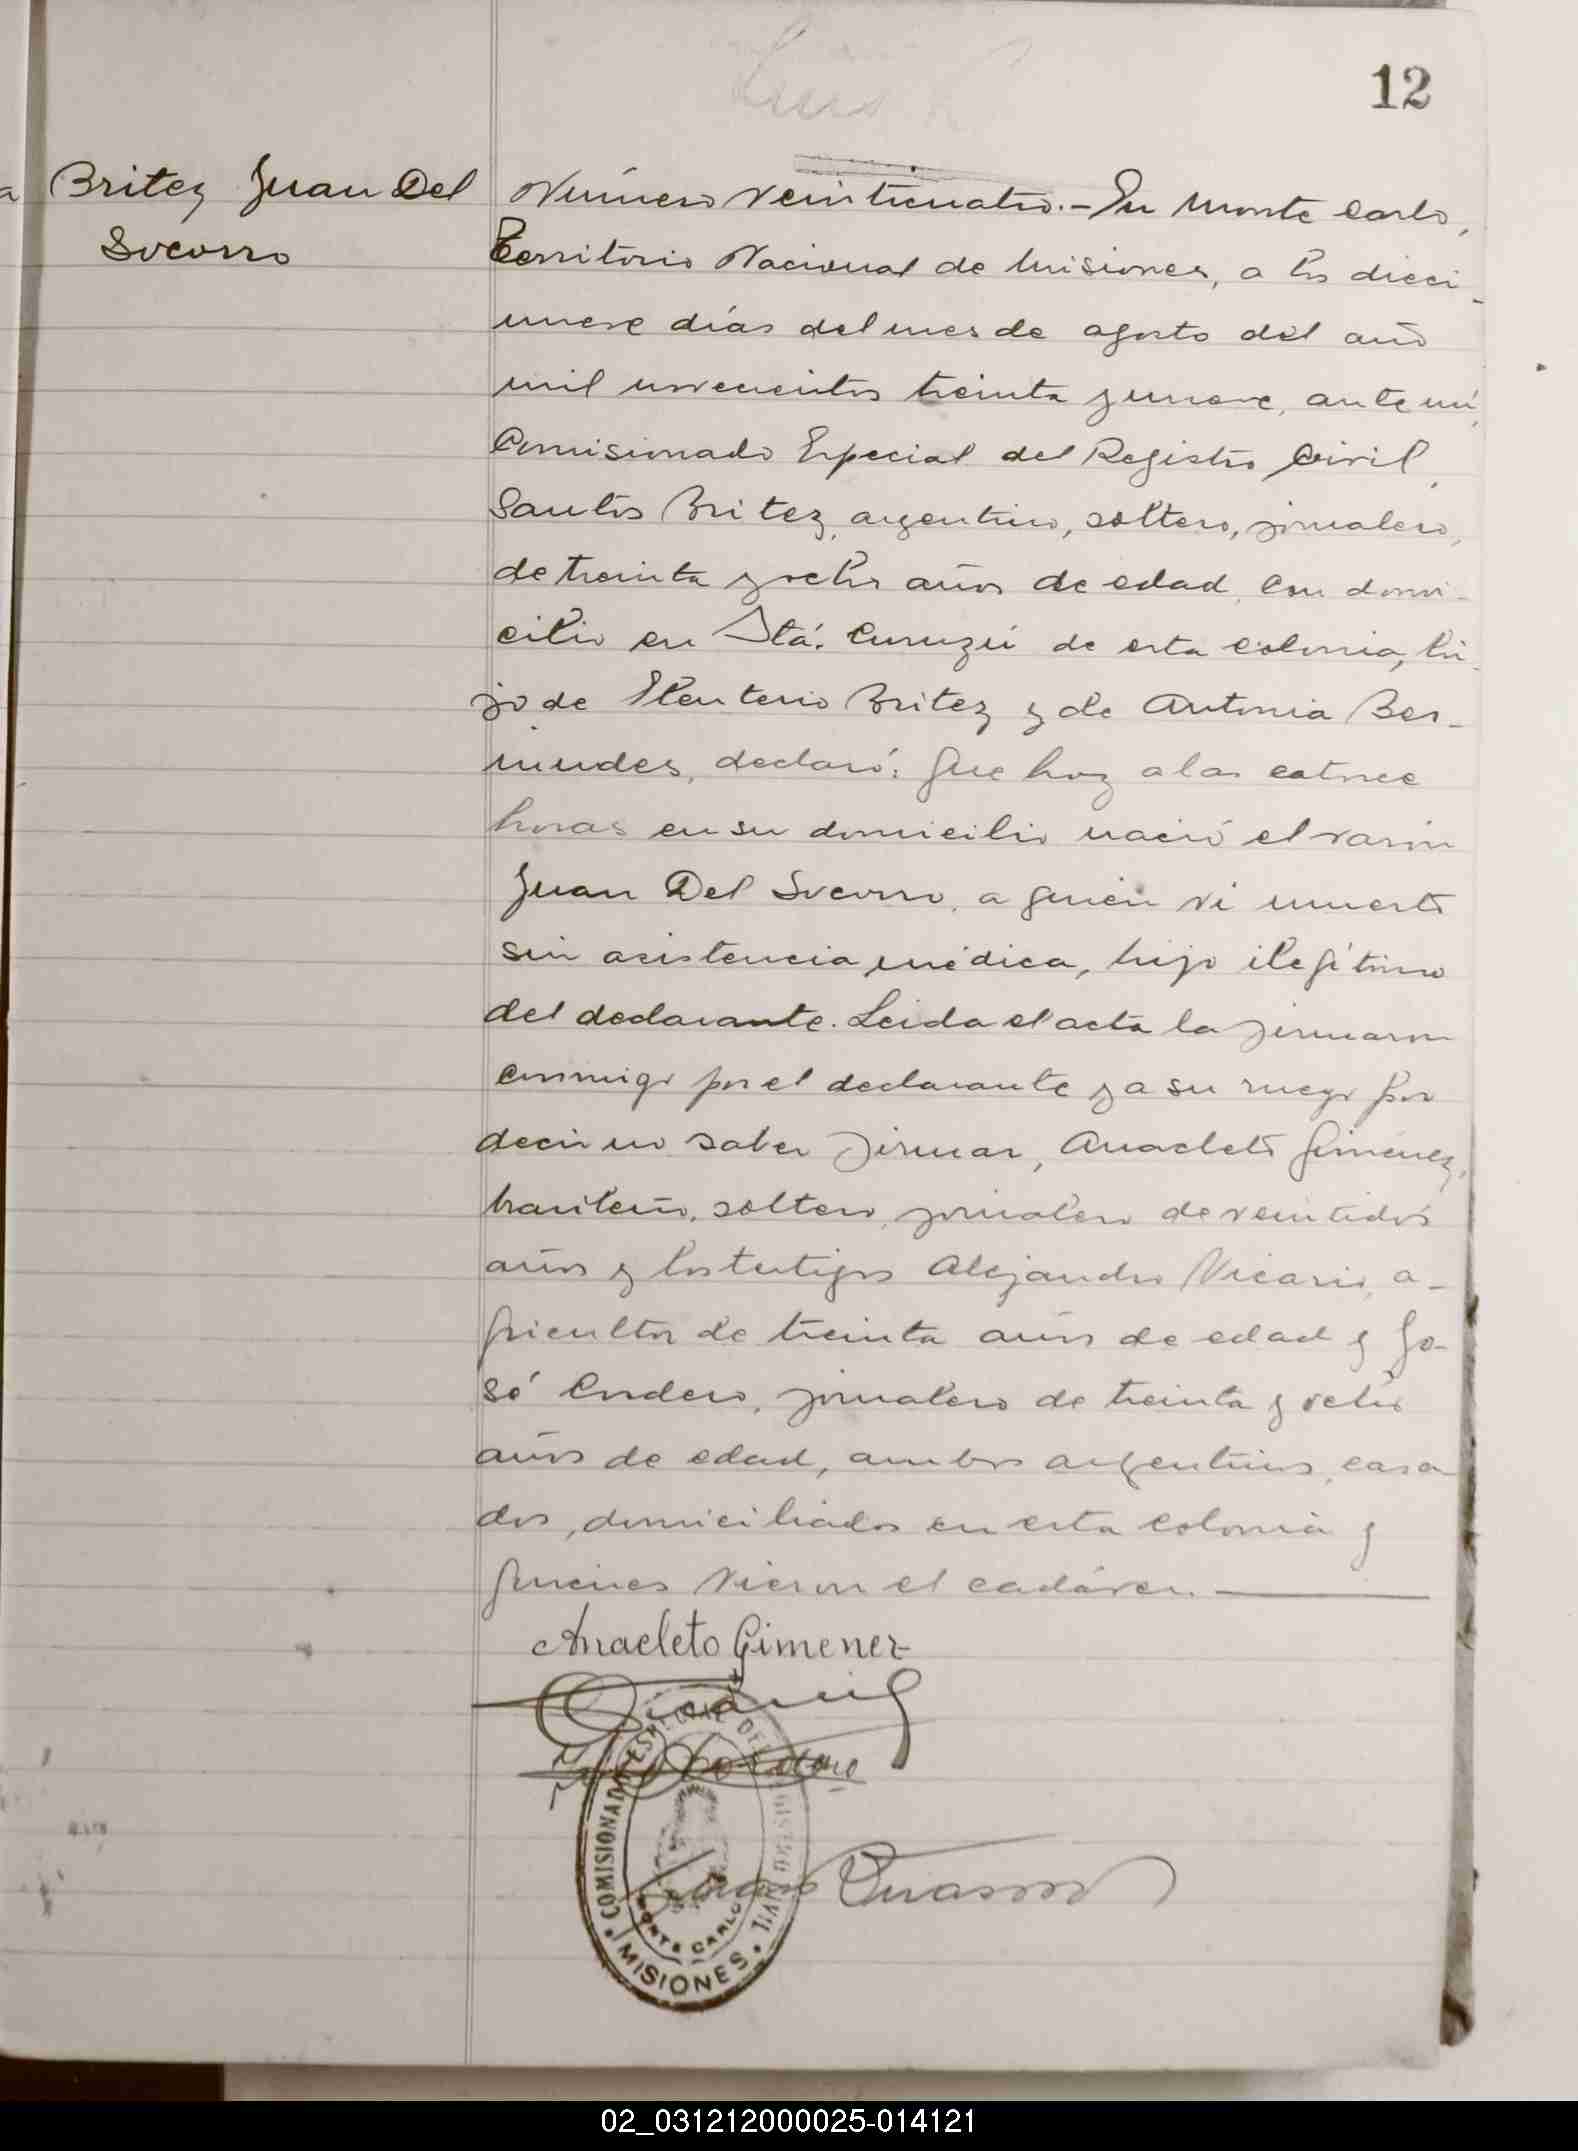 12
Britez Juan Del
Socorro
Número veinticuatro.- En Monte Carlo,
Territorio Nacional de Misiones, a los dieci-
nueve días del mes de agosto del año
mil novecientos treinta y nueve, ante mí,
Comisionado Especial del Registro Civil,
Santos Britez, argentino, soltero, jornalero,
de treinta y ocho años de edad, con domi-
cilio en Itá. Curuzú de esta colonia, hi-
jo de Eleuterio Britez y de Antonia Ber-
mudes, declaró: Que hoy a las catorce
horas en su domicilio nació el varón
Juan Del Socorro, a quien vi muerto
sin asistencia médica, hijo ilegítimo
del declarante. Leida el acta la firmaron
conmigo por el declarante y a su ruego por
decir no saber firmar, Anacleto Giménez,
brasileño, soltero, jornalero de veintidós
años y los testigos Alejandro Vicario, a-
gricultor de treinta años de edad y Jo-
sé Cordero, jornalero de treinta y ocho
años de edad, ambos argentinos, casa
dos, domiciliados en esta colonia y
quienes vieron el cadáver.
Anacleto Gimenez
COMISIONADO ESPECIAL DEL REGISTRO CIVIL
MONTE CARLO
MISIONES
02_031212000025-014121